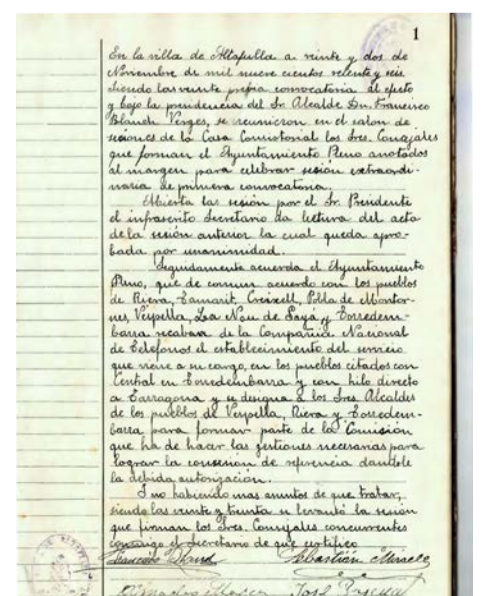 1
En la villa de Altafulla a veinte y dos de
Noviembre de mil nueve cientos veinte y seis
siendo las veinte prévia convocatoria al efecto
y bajo la presidencia del Sr. Alcalde Dn. Francisco
Blanch Verges, se reunieron en el salon de
sesiones de la Casa Consistorial los Sres. Concejales
que forman el Ayuntamiento Pleno anotados
al margen para celebrar sesión extraordi-
naria de primera convocatoria.
Abierta las sesión por el Sr. Presidente
el infrascrito Secretario da lectura del acta
de la sesión anterior la cual queda apro-
bada por unanimidad.
Seguidamente acuerda el Ayuntamiento
Pleno, que de comun acuerdo con los pueblos
de Riera, Tamarit, Creixell, Pobla de Montor-
nes, Vespella, La Nou de Gayá y Torredem-
barra recaban de la Compañia Nacional
de Teléfonos el establecimiento del servicio
que viene a su cargo, en los pueblos citados con
Central en Torredembarra y con hilo directo
a Tarragona y se designa a los Sres. Alcaldes
de los pueblos de Vespella, Riera y Torredem-
barra para formar parte de la Comisión
que ha de hacer las gestiones necesarias para
lograr la consesión de referencia dandole
la debida autorización.
I no habiendo mas asuntos de que tratar,
siendo las veinte y treinta se levantó la sesión
que firman los Sres. Consejales concurrentes
conmigo el Secretario de que certifico
Francisco Blanch Sebastián
José